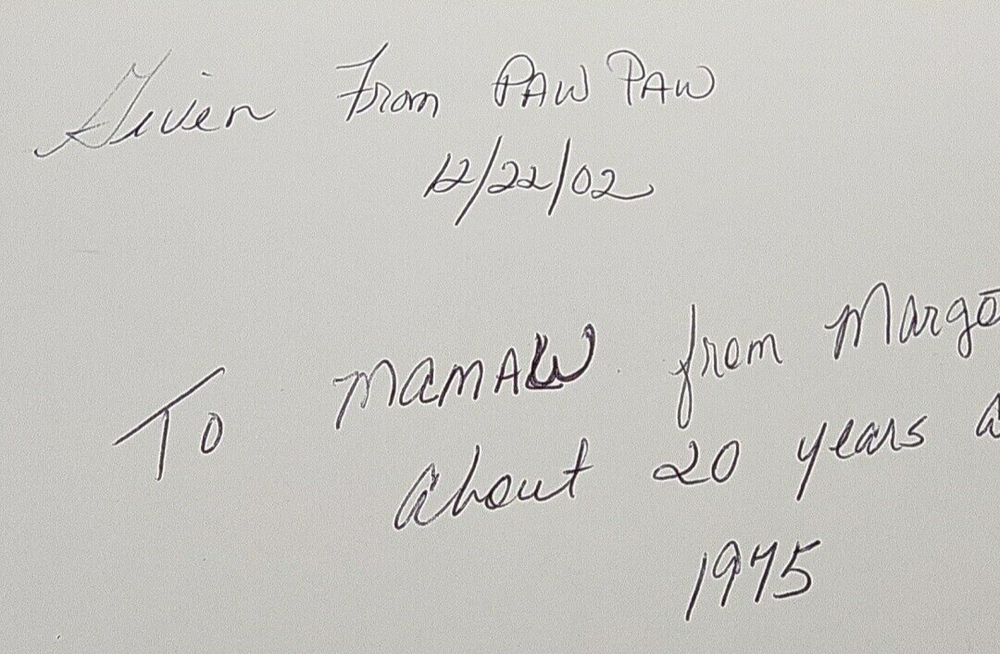 Given From PAW PAW
12/22/02
To MAMAW from Margo
about 20 years a
1975